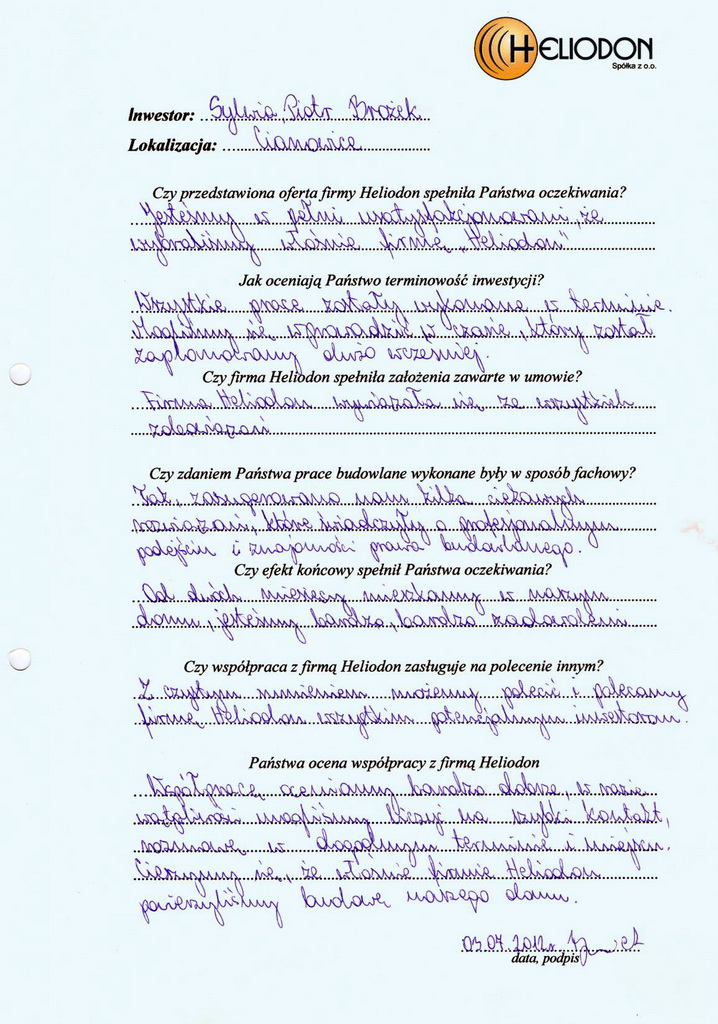 HELIODON
Spółka z o.o.
Inwestor: Sylwia, Piotr Brożek
Lokalizacja: Cianowice
Czy przedstawiona oferta firmy Heliodon spełniła Państwa oczekiwania?
Jesteśmy w pełni usatysfakcjonowani, że
wybraliśmy właśnie firmę „Heliodon"
Jak oceniają Państwo terminowość inwestycji?
Wszystkie prace zostały wykonane w terminie.
Mogliśmy się wprowadzić w czasie, który został
zaplanowany dużo wcześniej.
Czy firma Heliodon spełniła założenia zawarte w umowie?
Firma Heliodon wywiązała się ze wszystkich
zobowiązań
Czy zdaniem Państwa prace budowlane wykonane były w sposób fachowy?
Tak, zasugerowano nam kilka ciekawych
rozwiązań, które świadczyły o profesjonalnym
podejściu i znajomości prawa budowlanego.
Czy efekt końcowy spełnił Państwa oczekiwania?
Od dwóch miesięcy mieszkamy w naszym
domu, jesteśmy bardzo, bardzo zadowoleni
Czy współpraca z firmą Heliodon zasługuje na polecenie innym?
Z czystym sumieniem możemy polecić i polecamy
firmę Heliodon wszystkim potencjalnym inwestorom.
Państwa ocena współpracy z firmą Heliodon
Współpracę oceniamy bardzo dobrze, w razie
wątpliwości mogliśmy liczyć na szybki kontakt,
rozmowę w dogodnym terminie i miejscu.
Cieszymy się, że właśnie firmie Heliodon
powierzyliśmy budowę naszego domu.
03.07.2012r.
data, podpis